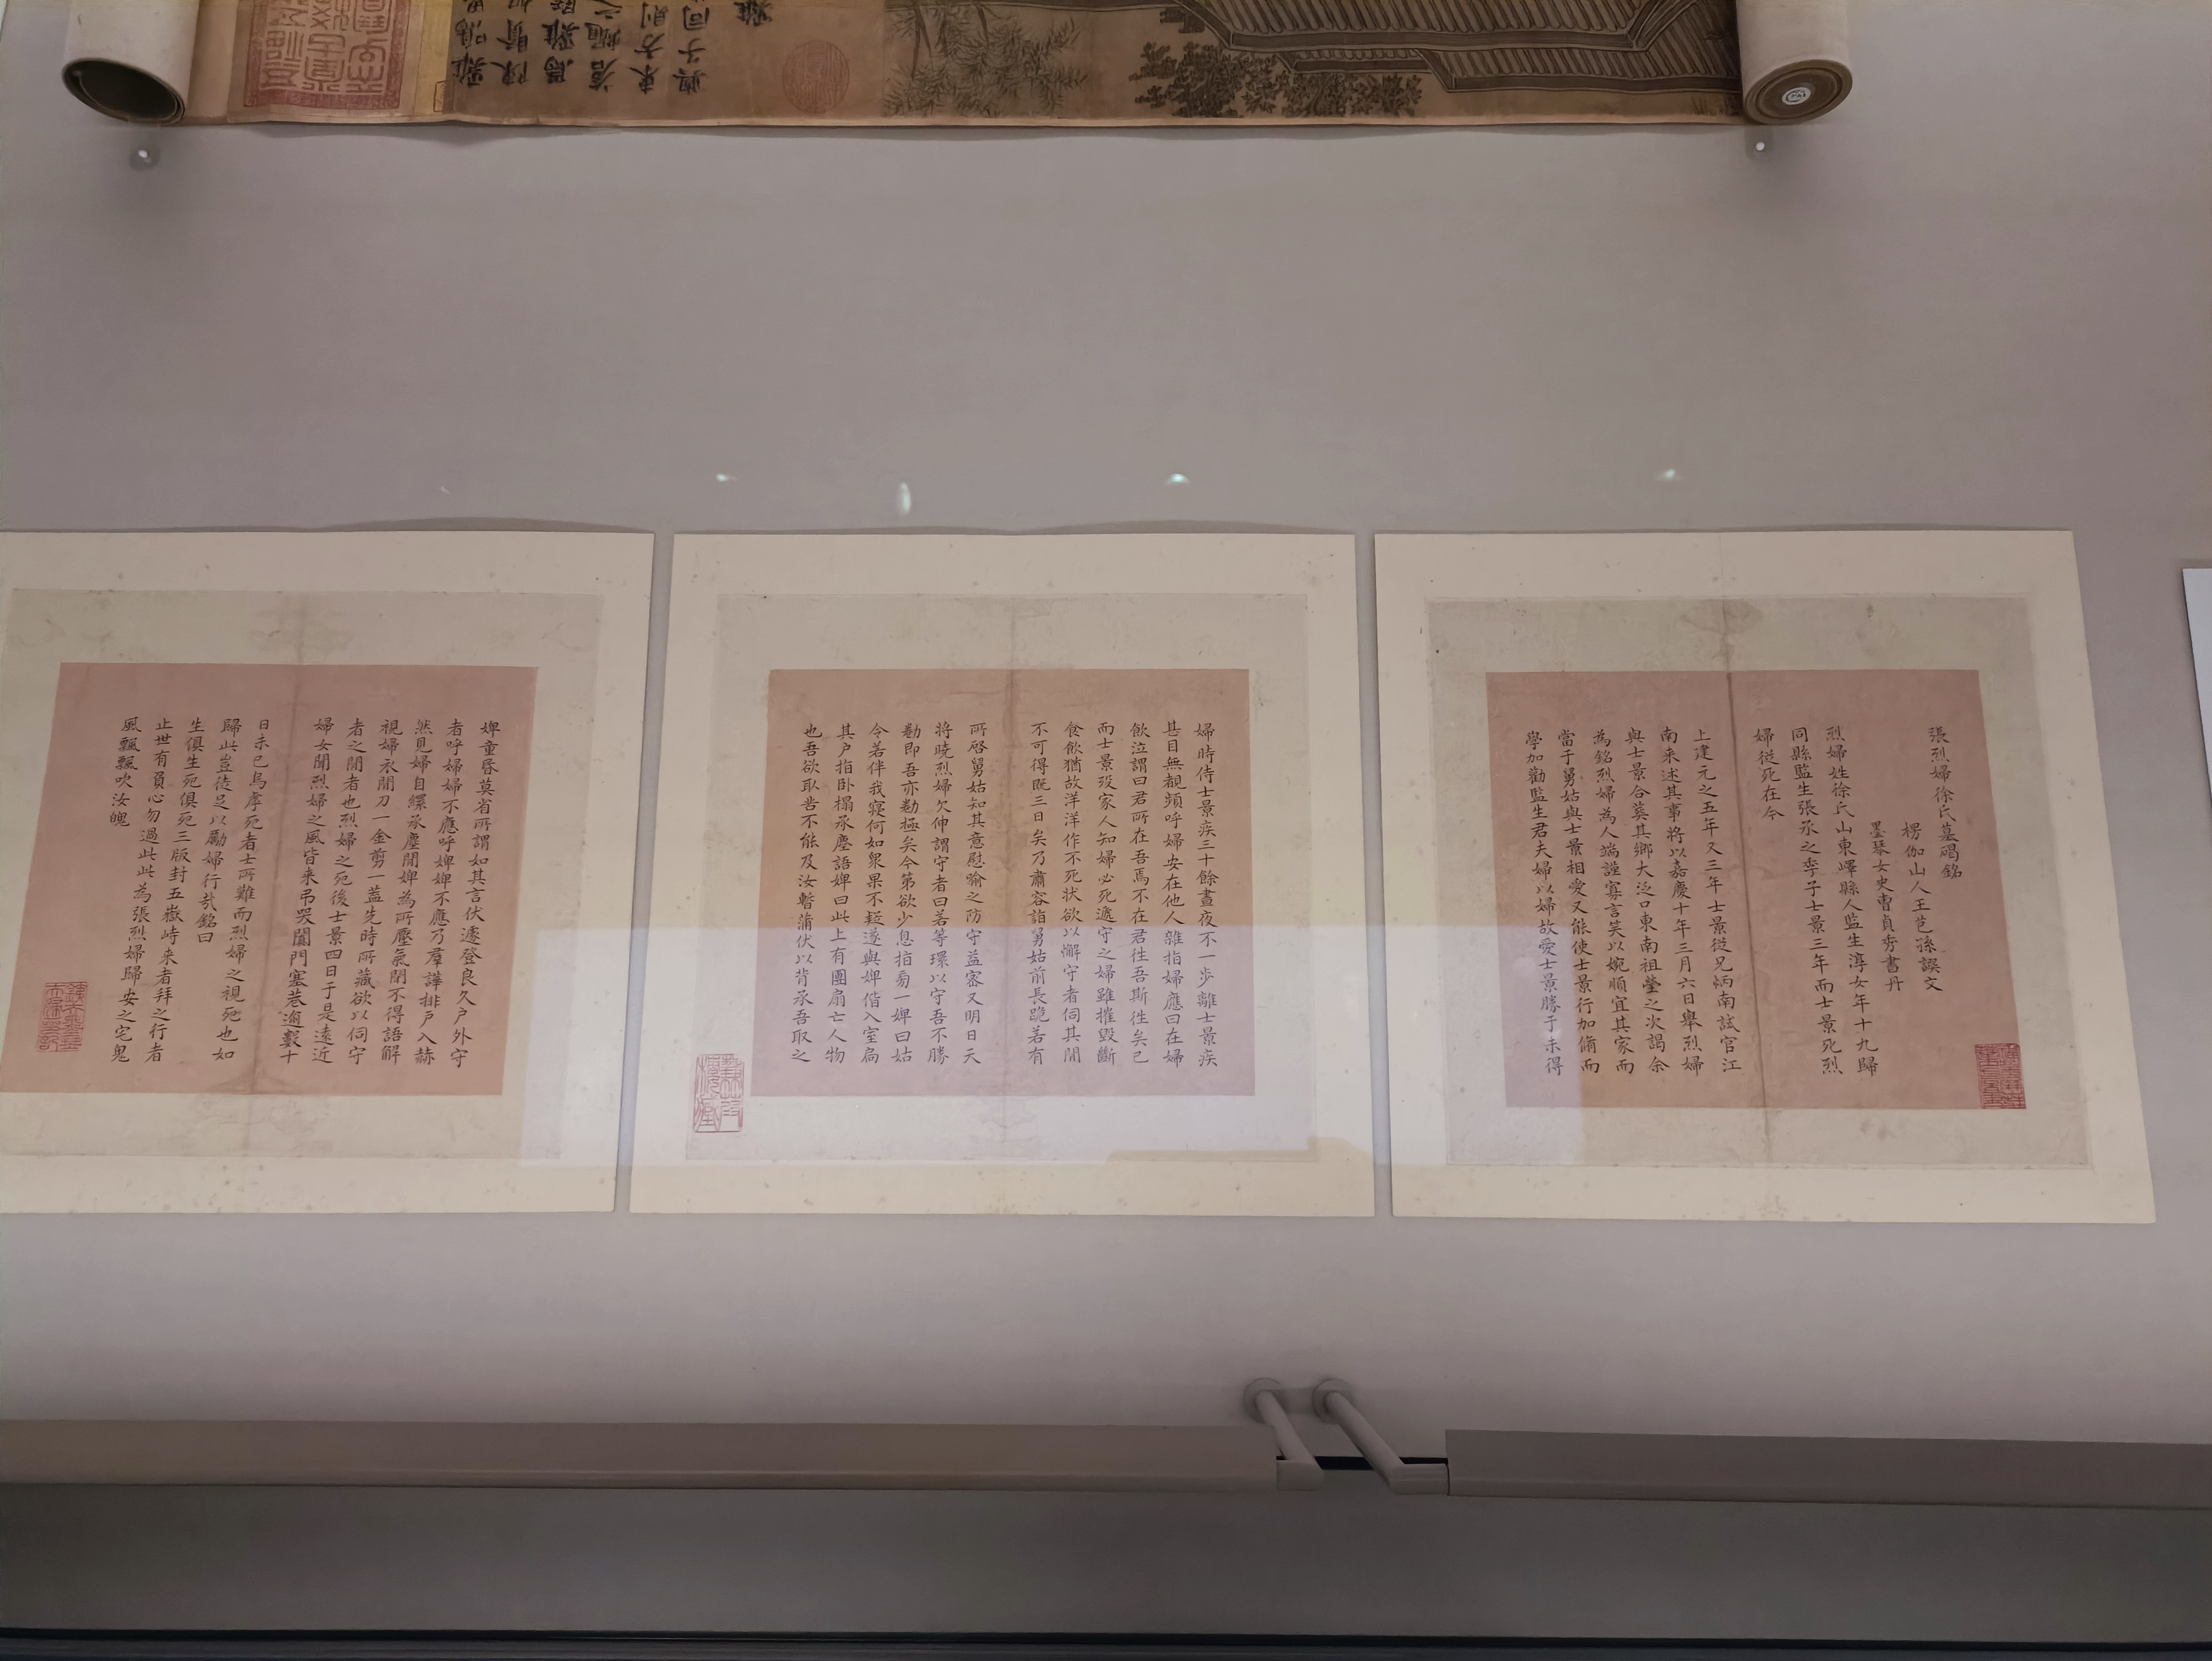 張烈婦徐氏墓碣銘
楞伽山人王芑孫譔文
墨琴女史曹貞秀書丹
烈婦姓徐氏山東嶧縣人監生淳女年十九歸
同縣監生張承之季子士景三年而士景死烈
婦從死在今
上建元之五年又三年士景從兄炳南試官江
南来述其事將以嘉慶十年三月六日舉烈婦
與士景合葵其鄉大泛口東南祖塋之次謁余
為銘烈婦為人端謹寡言笑以婉順宜其家而
當于舅姑與士景相愛又能使士景行加脩而
學加勸監生君夫婦以婦故愛士景勝于未得
婦時侍士景疾三十餘晝夜不一步離士景疾
甚目無覩頻呼婦安在他人雜指婦應曰在婦
飲泣謂曰君所在吾焉不在君徃吾斯徃矣已
而士景歿家人知婦必死遞守之婦雖摧毀斷
食飲猶故洋洋作不死状欲以懈守者伺其閒
不可得既三日矣乃肅容詣舅姑前長跪若有
所啓舅姑知其意慰喻之防守益密又明日天
将曉烈婦欠伸謂守者曰若等環以守吾不勝
勌即吾亦勌極矣今第欲少息指易一婢曰姑
令若伴我寢何如衆果不疑遂與婢偕入室扃
其户指卧榻承塵語婢曰此上有團扇亡人物
也吾欲取告不能及汝暫蒲伏以背承吾取之
婢童昏莫省所謂如其言伏遽登良久户外守
者呼婦婦不應呼婢婢不應乃羣譁排户入赫
然見婦自縲承塵閒婢為所壓氣閉不得語解
視婦衣閒刀一金剪一盖先時所藏欲以伺守
者之閒者也烈婦之死後士景四日于是遠近
婦女聞烈婦之風皆来弔哭闐門塞巷逾數十
日未已烏虖死者士所難而烈婦之視死也如
歸此豈徒足以勵婦行㢤銘曰
生俱生死俱死三版封五嶽峙来者拜之行者
止世有貟心勿過此此為張烈婦歸安之宅鬼
風飄飄吹汝魄